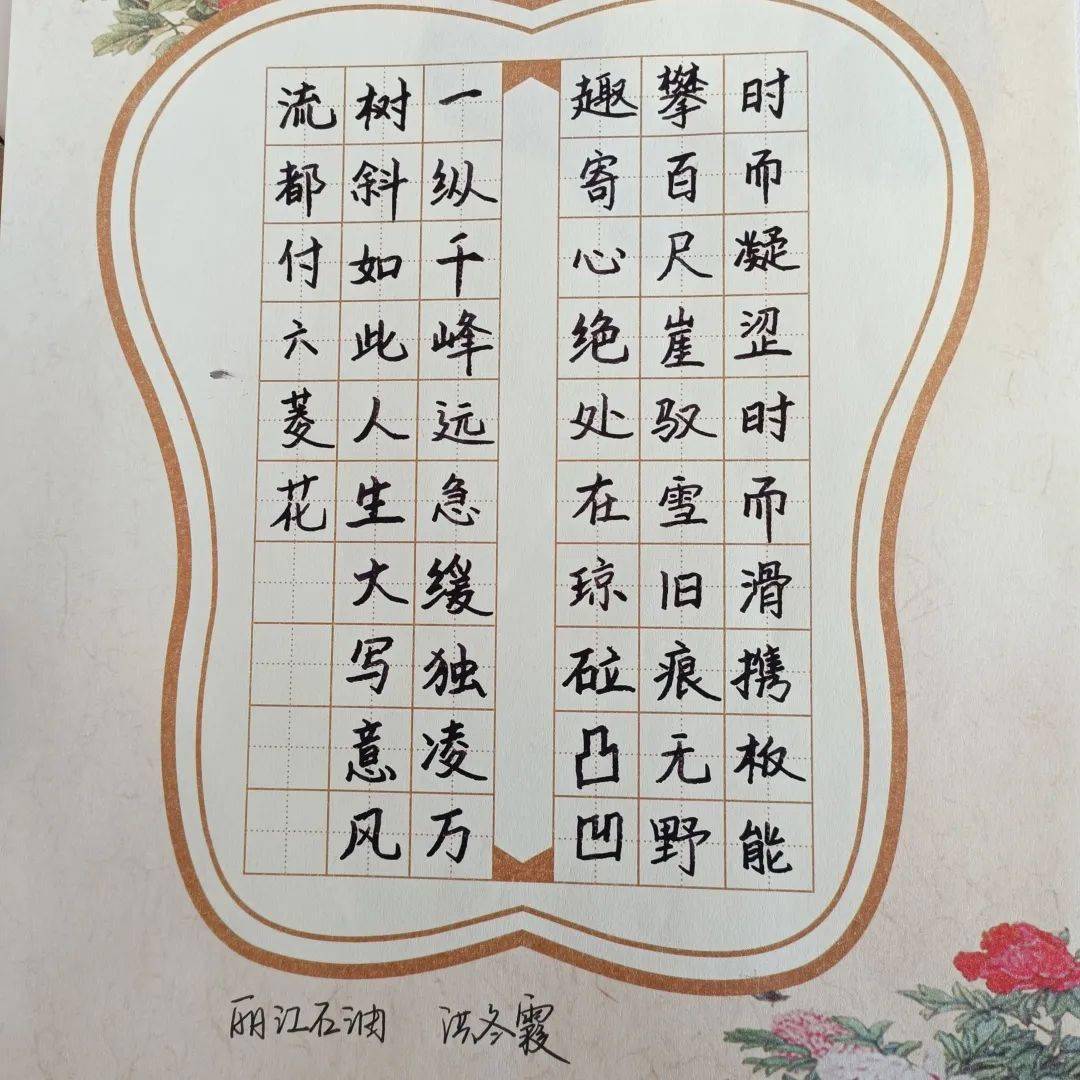 时而凝涩时而滑携板能
攀百尺崖驭雪旧痕无野
趣寄心绝处在琼砬凸凹
一纵千峰远急缓独凌万
树斜如此人生大写意风
流都付六菱花
丽江石油 洪冬霞